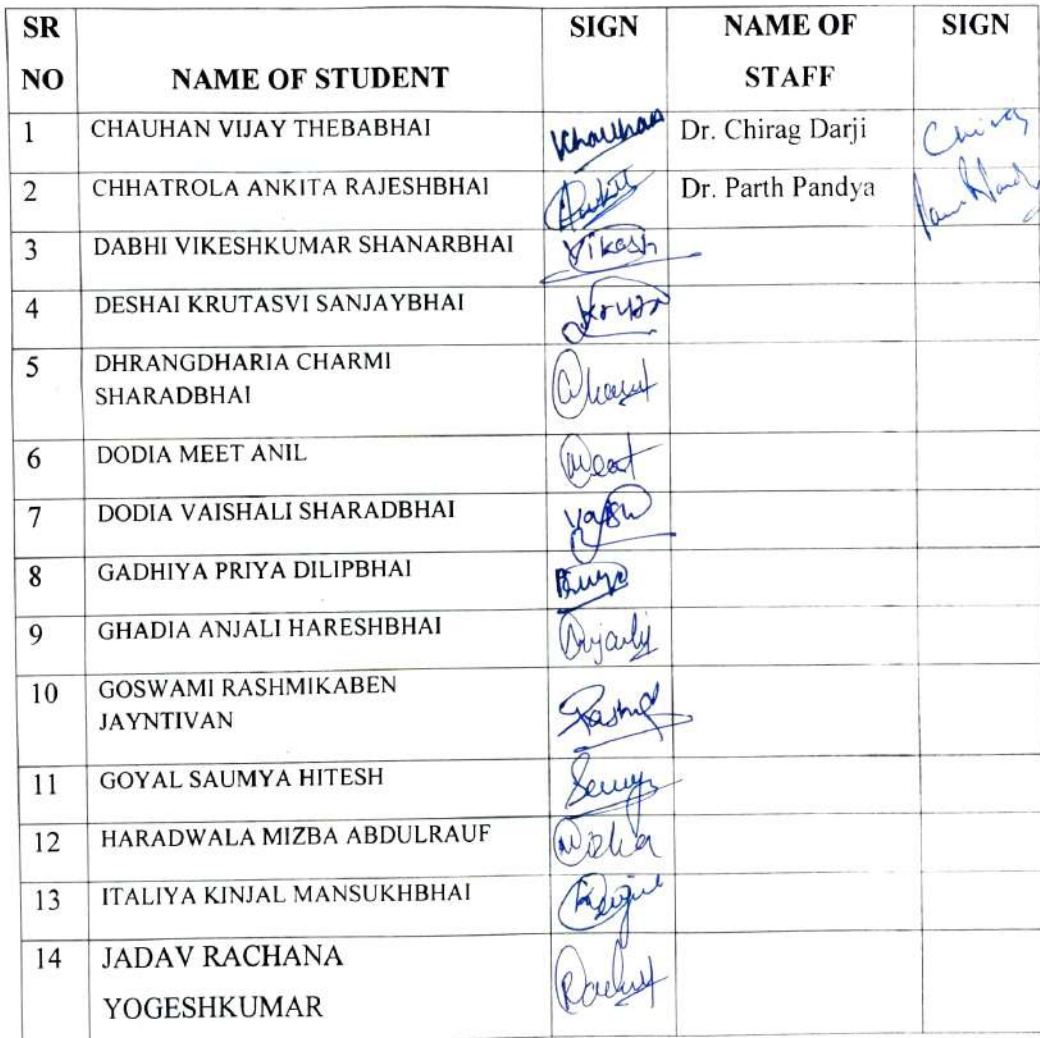 SR NO NAME OF STUDENT SIGN NAME OF STAFF SIGN
1 CHAUHAN VIJAY THEBABHAI Khauhan Dr. Chirag Darji Chirag
2 CHHATROLA ANKITA RAJESHBHAI Ankita Dr. Parth Pandya
3 DABHI VIKESHKUMAR SHANARBHAI Vikash
4 DESHAI KRUTASVI SANJAYBHAI
5 DHRANGDHARIA CHARMI
SHARADBHAI
6 DODIA MEET ANIL Meet
7 DODIA VAISHALI SHARADBHAI
8 GADHIYA PRIYA DILIPBHAI
9 GHADIA ANJALI HARESHBHAI Anjali
10 GOSWAMI RASHMIKABEN
JAYNTIVAN
11 GOYAL SAUMYA HITESH
12 HARADWALA MIZBA ABDULRAUF
13 ITALIYA KINJAL MANSUKHBHAI
14 JADAV RACHANA
YOGESHKUMAR